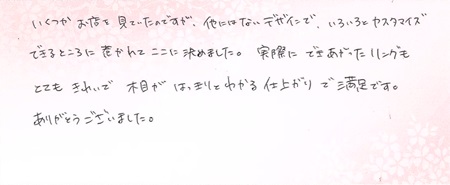 いくつかお店を見ていたのですが、他にはないデザインで、いろいろとカスタマイズ
できるところに惹かれてここに決めました。実際にできあがったリングも
とてもきれいで木目がはっきりとわかる仕上がりで満足です。
ありがとうございました。